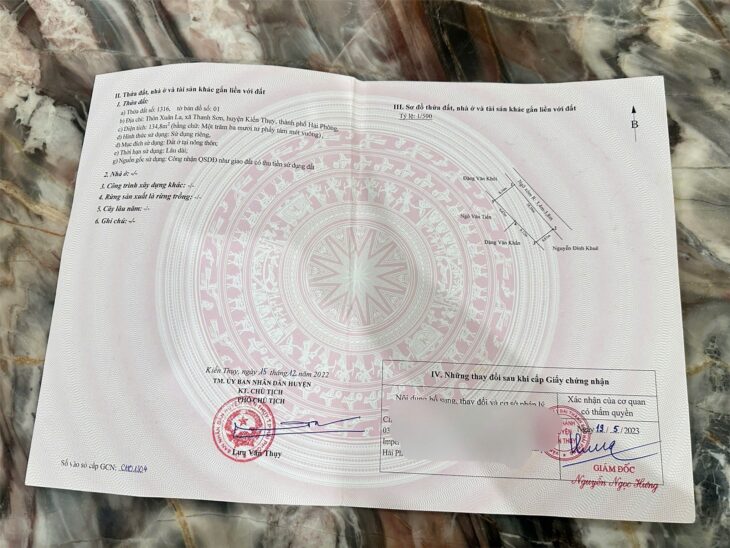 II. Thửa đất, nhà ở và tài sản khác gắn liền với đất
1. Thửa đất:
a) Thửa đất số: 1316, tờ bản đồ số: 01
b) Địa chỉ: Thôn Xuân La, xã Thanh Sơn, huyện Kiến Thụy, thành phố Hải Phòng,
c) Diện tích: 134,8m² (bằng chữ: Một trăm ba mươi tư phẩy tám mét vuông),
d) Hình thức sử dụng: Sử dụng riêng,
đ) Mục đích sử dụng: Đất ở tại nông thôn;
e) Thời hạn sử dụng: Lâu dài;
g) Nguồn gốc sử dụng: Công nhận QSDĐ như giao đất có thu tiền sử dụng đất
2. Nhà ở: -/-
3. Công trình xây dựng khác: -/-
4. Rừng sản xuất là rừng trồng: -/-
5. Cây lâu năm: -/-
6. Ghi chú: -/-
Kiến Thụy, ngày 15 tháng 12 năm 2022
TM. ỦY BAN NHÂN DÂN HUYỆN
KT. CHỦ TỊCH
PHÓ CHỦ TỊCH
Lưu Văn Thụy
Số vào sổ cấp GCN:
III. Sơ đồ thửa đất, nhà ở và tài sản khác gắn liền với đất
Tỷ lệ: 1/500
B
Đặng Văn Khôi
Ngô Văn Tiến
Đặng Văn Khẩn
Nguyễn Đình Khuê
IV. Những thay đổi sau khi cấp Giấy chứng nhận
Nội dung bổ sung, thay đổi và cơ sở pháp lý
Xác nhận của cơ quan
có thẩm quyền
03
Hải
Ngày 19/5/2023
GIÁM ĐỐC
Nguyễn Ngọc Hưng